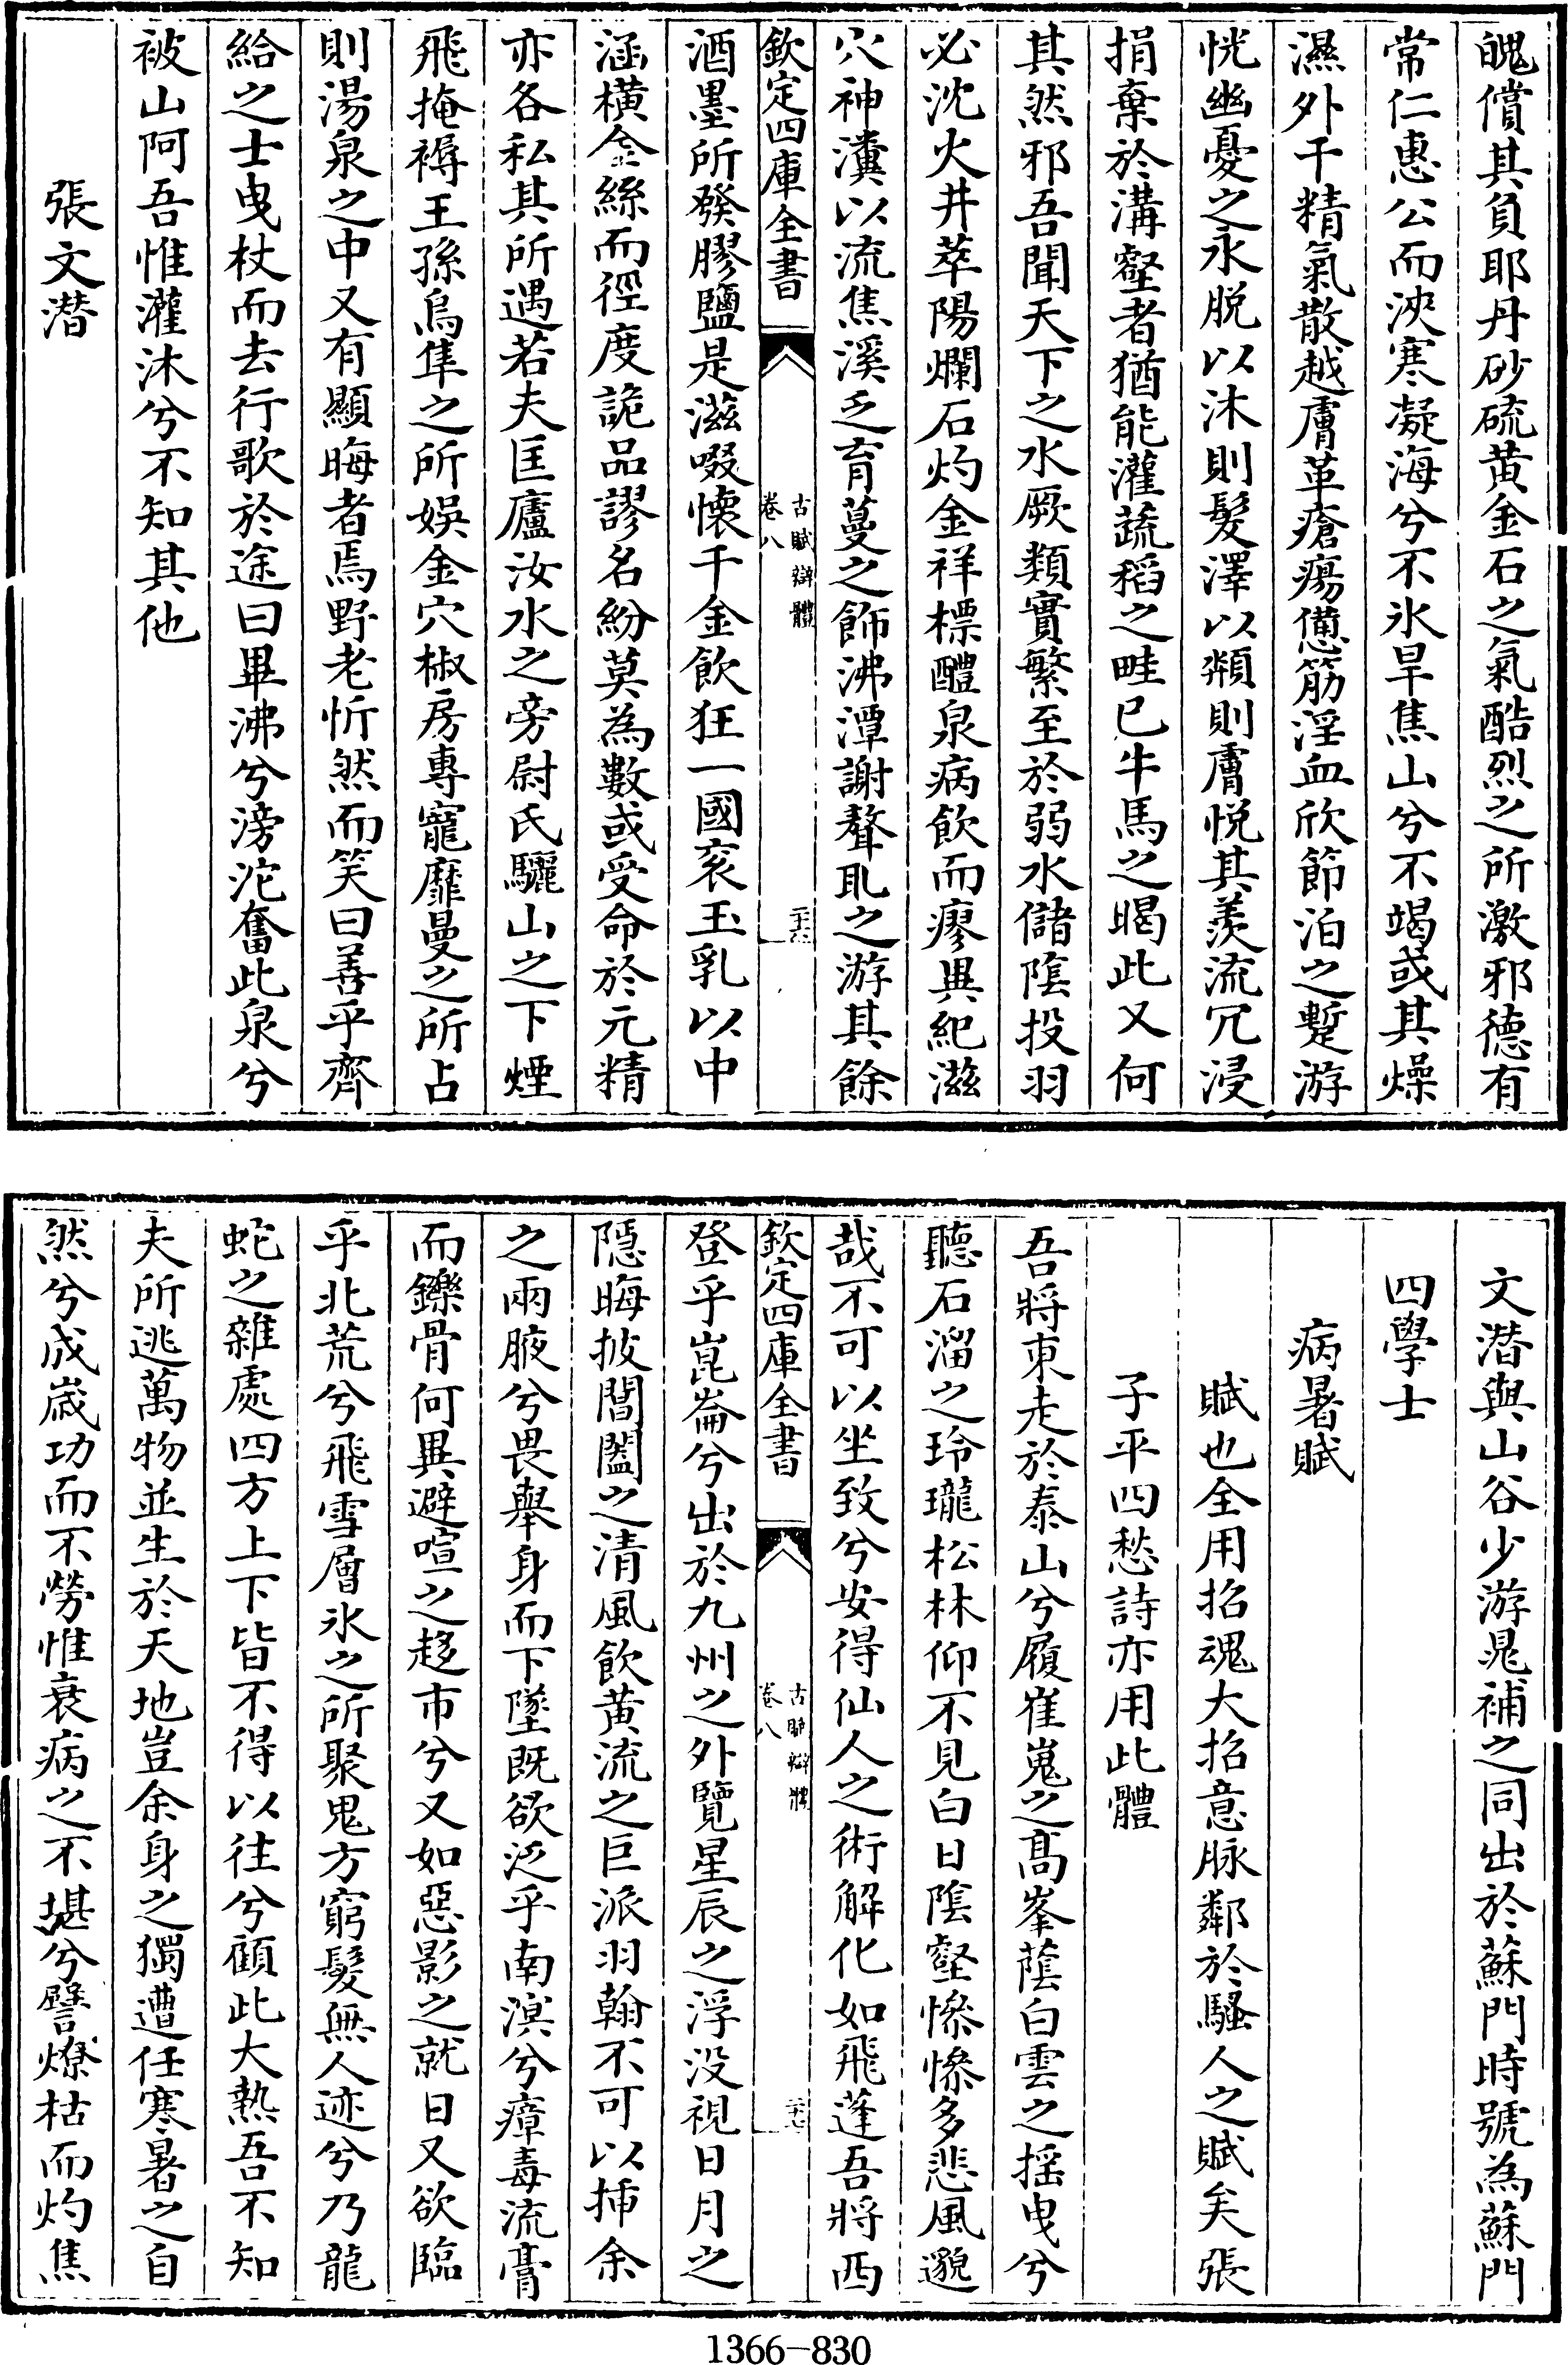 醜償其負耶丹砂硫黄金石之氣酷烈之所激邪德有
常仁惠公而浹寒凝海兮不氷旱焦山兮不竭或其燥
濕外干精氣散越膚革瘡瘍憊筋淫血欣節泊之蹔游
恍幽憂之永脱以沐則髮澤以頮則膚悦其羨流冗浸
捐棄於溝壑者猶能灌蔬稻之畦已牛馬之暍此又何
其然邪吾聞天下之水厥類實繁至於弱水儲隂投羽
必沈火井萃陽爛石灼金祥標醴泉病飲而瘳異紀滋
穴神瀵以流焦溪乏育蔓之飾沸潭謝聱耴之游其餘
欽定四庫全書
古賦辯體
卷八
二十六
酒墨所發膠鹽是滋啜懐千金飲狂一國衮玉乳以中
涵横金絲而徑度詭品謬名紛莫為數或受命於元精
亦各私其所遇若夫匡廬汝水之旁尉氏驪山之下煙
飛掩褥王孫烏隼之所娯金穴椒房專寵靡曼之所占
則湯泉之中又有顯晦者焉野老忻然而笑曰善乎齊
給之士曳杖而去行歌於途曰畢沸兮滂沱奮此泉兮
被山阿吾惟灌沐兮不知其他
張文潛
文潛與山谷少游晁補之同出於蘇門時號為蘇門
四學士
病暑賦
賦也全用招魂大招意脉鄰於騷人之賦矣張
子平四愁詩亦用此體
吾將東走於泰山兮履崔嵬之髙峯蔭白雲之揺曳兮
聽石溜之玲瓏松林仰不見白日隂壑慘慘多悲風邈
哉不可以坐致兮安得仙人之術解化如飛蓬吾將西
欽定四庫全書
古賦辯體
卷八
二十七
登乎崑崙兮出於九州之外覽星辰之浮没視日月之
隠晦披閶闔之清風飲黄流之巨派羽翰不可以揷余
之兩腋兮畏舉身而下墜既欲泛乎南溟兮瘴毒流膏
而鑠骨何異避喧之趍市兮又如惡影之就日又欲臨
乎北荒兮飛雪層氷之所聚鬼方窮髮無人迹兮乃龍
蛇之雜處四方上下皆不得以往兮顧此大熱吾不知
夫所逃萬物並生於天地豈余身之獨遭任寒暑之自
然兮成嵗功而不勞惟衰病之不堪兮譬燎枯而灼焦
1366-830